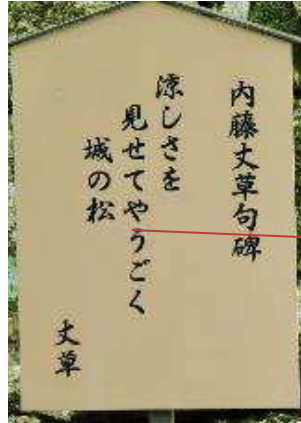 内藤丈草句碑
涼しさを
見せてやうごく
城の松
丈草